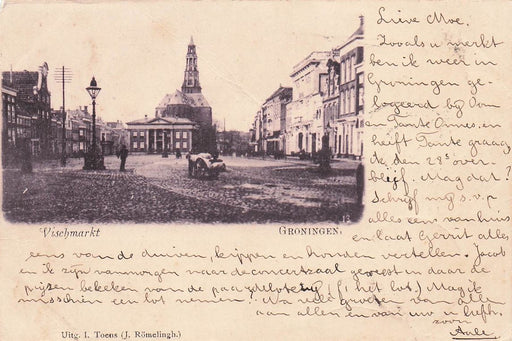 Lieve Moe.
Zooals u merkt
ben ik weer in
Groningen ge-
logeerd bij Oom
en Tante Annes, en
heeft Tante graag
de, den 29s over-
blijf. Mag dat?
Schrijf mij s.v.p
alles eens van huis
en laat Gerrit alles
Vischmarkt
GRONINGEN.
eens van de duiven, kippen en honden vertellen. Jacob
en ik zijn vanmorgen naar de concertzaal geweest en daar de
prijzen bekeken van de paardeloterij! (ƒ1 het lot) Mag ik
misschien een lot nemen? Nu veel groeten van allen
aan allen en van uw u liefh.
zoon
Uitg. I. Toens (J. Römelingh.)